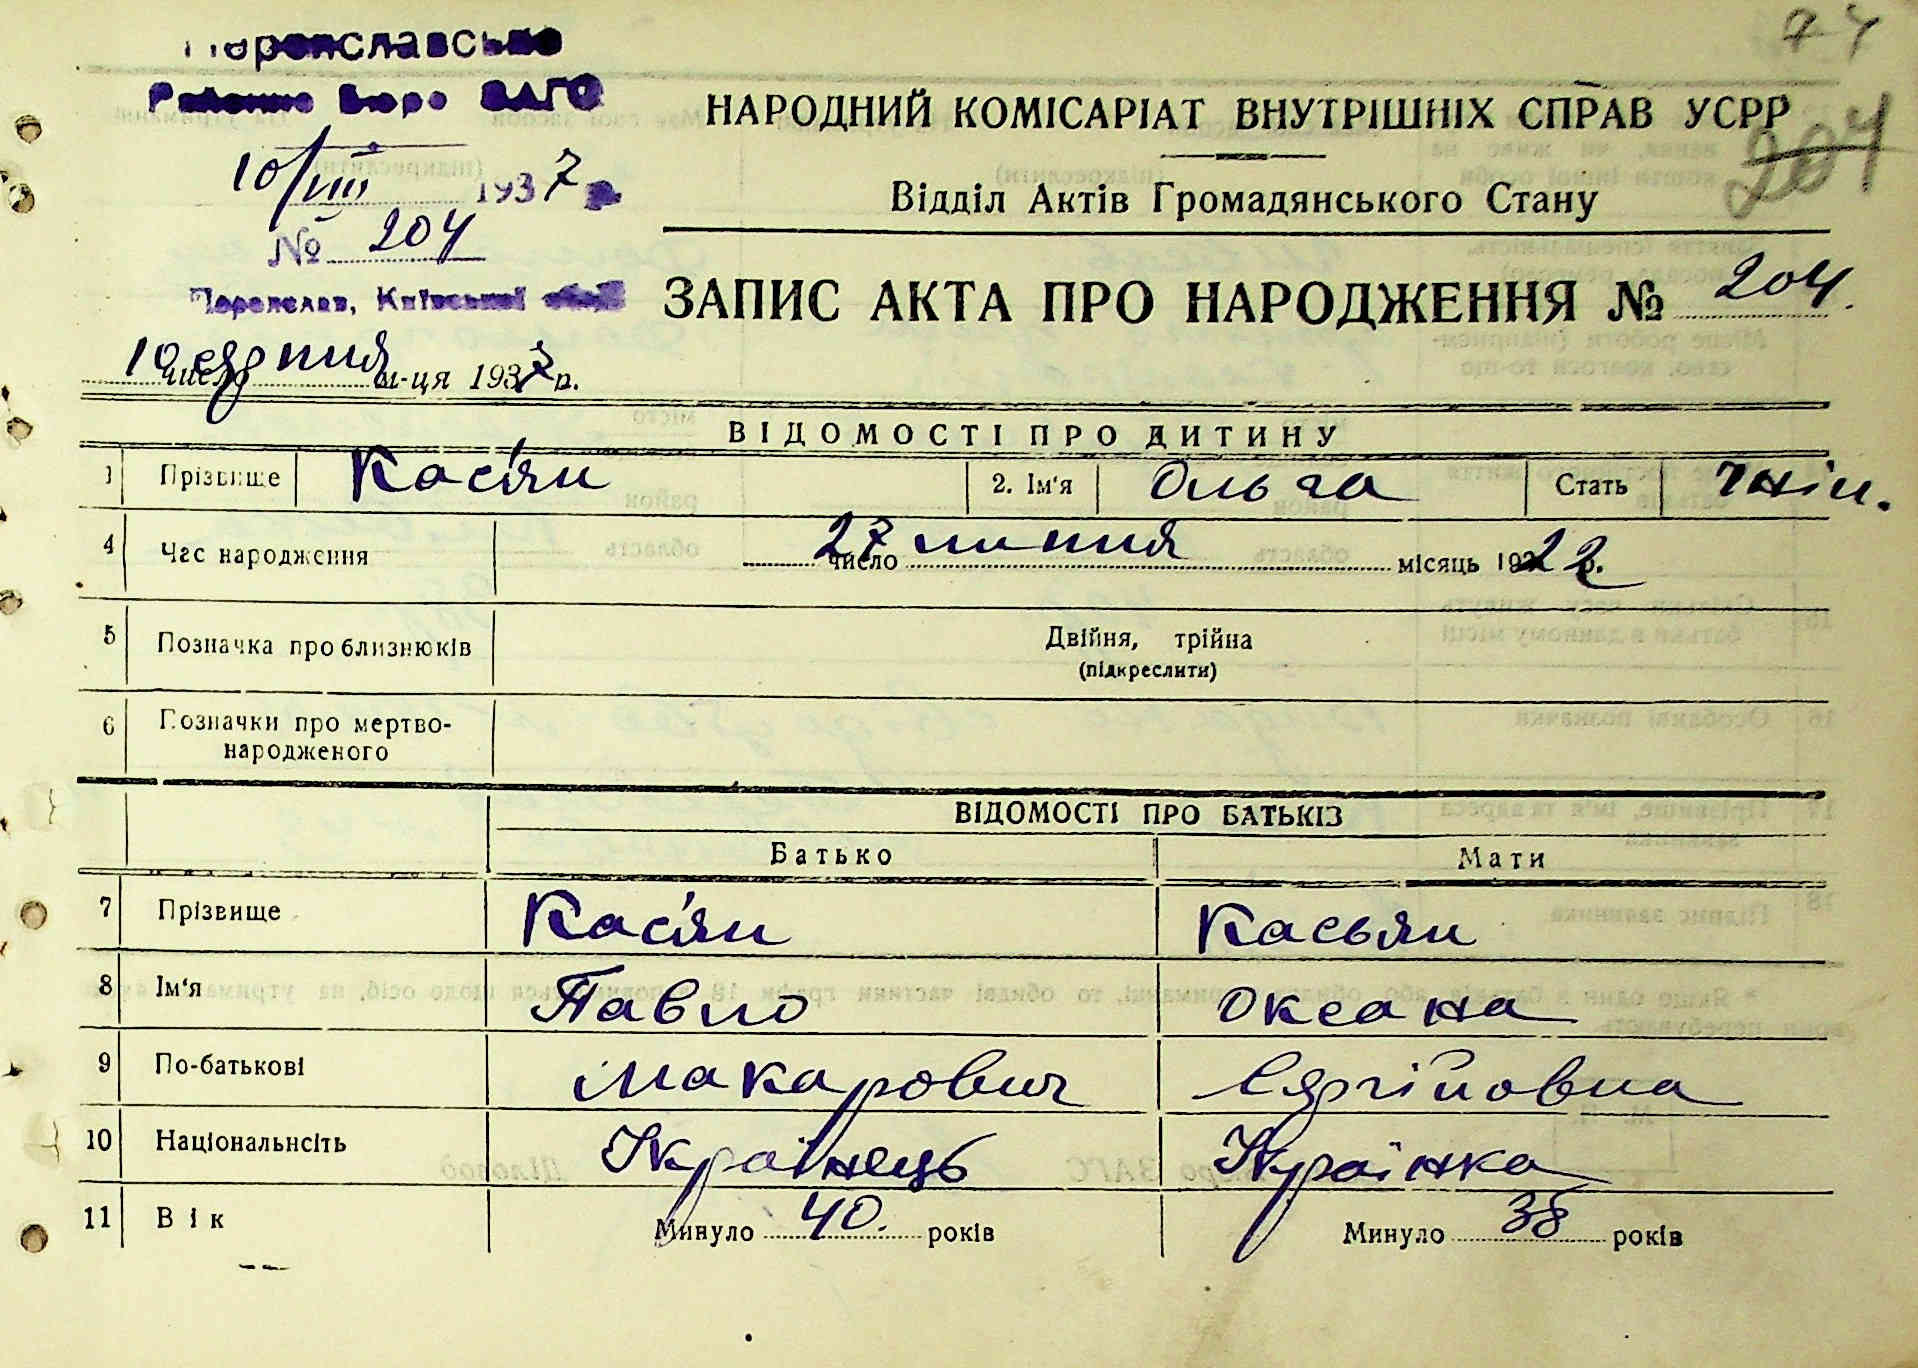 Переяславське
Районне Бюро ЗАГС
74
НАРОДНИЙ КОМІСАРІАТ ВНУТРІШНІХ СПРАВ УСРР
204
10/VIII 1937 р.
Відділ Актів Громадянського Стану
№ 204
Переяслав, Київської обл.
ЗАПИС АКТА ПРО НАРОДЖЕННЯ № 204.
10 число серпня м-ця 1937 р.
ВІДОМОСТІ ПРО ДИТИНУ
1 Прізвище Касіян 2. Ім'я Ольга Стать жін.
4 Час народження 27 число липня місяць 1922 р.
5 Позначка про близнюків Двійня, трійна
(підкреслити)
6 Позначки про мертво-
народженого
ВІДОМОСТІ ПРО БАТЬКІВ
Батько Мати
7 Прізвище Касіян Касьян
8 Ім'я Павло Оксана
9 По-батькові Макарович Сергійовна
10 Національнсіть Українець Українка
11 Вік Минуло 40. років Минуло 38 років